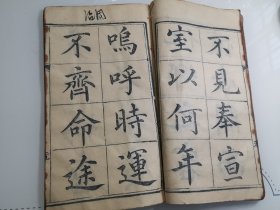 不見奉宣
室以何年
嗚呼時運
不齊命途